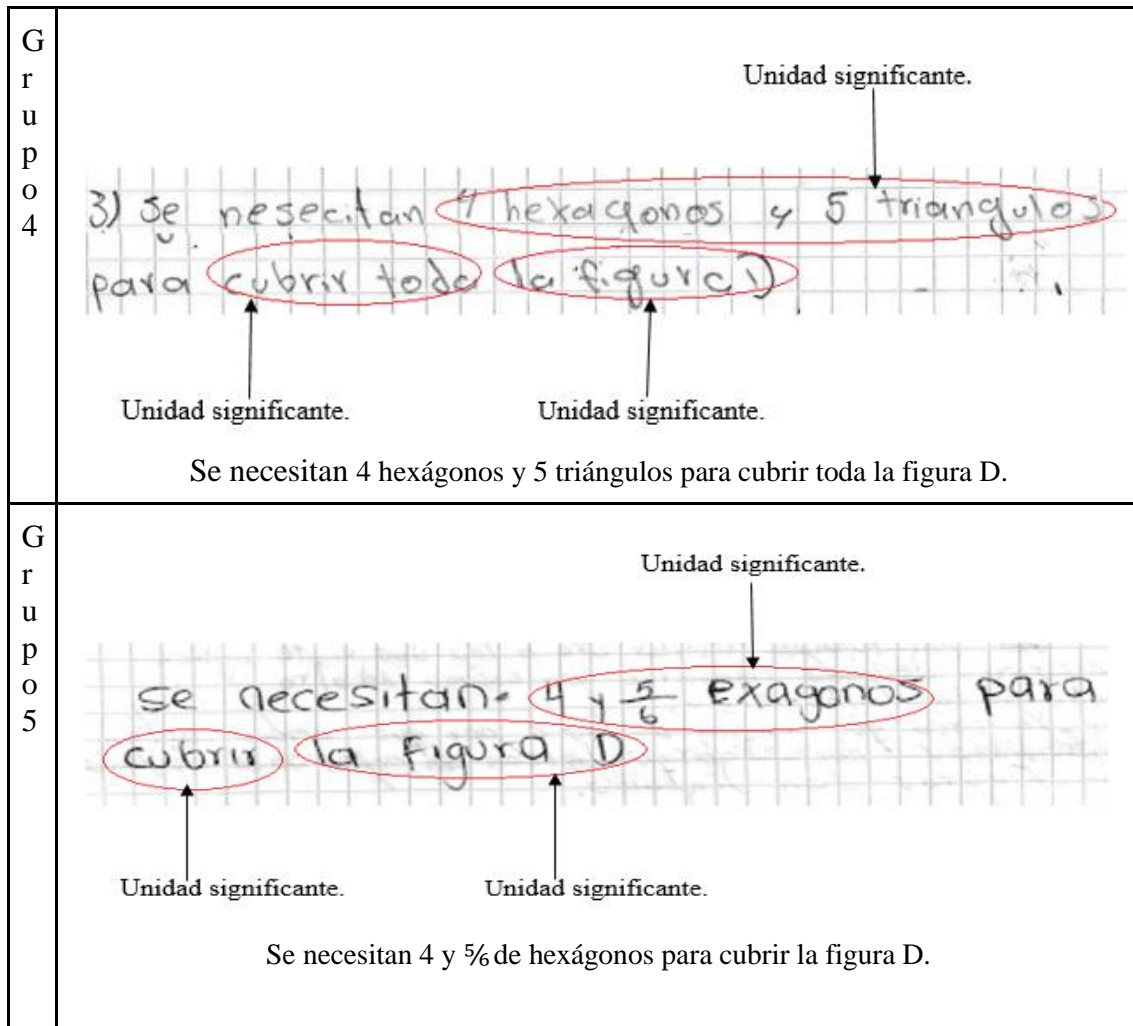 Grupo 4
Unidad significante.
3) se nesecitan 4 hexagonos y 5 triangulos
para cubrir toda la figura D
Unidad significante. Unidad significante.
Se necesitan 4 hexágonos y 5 triángulos para cubrir toda la figura D.
Grupo 5
Unidad significante.
se necesitan. 4 y 5/6 exagonos para
cubrir la Figura D
Unidad significante. Unidad significante.
Se necesitan 4 y ⅚ de hexágonos para cubrir la figura D.